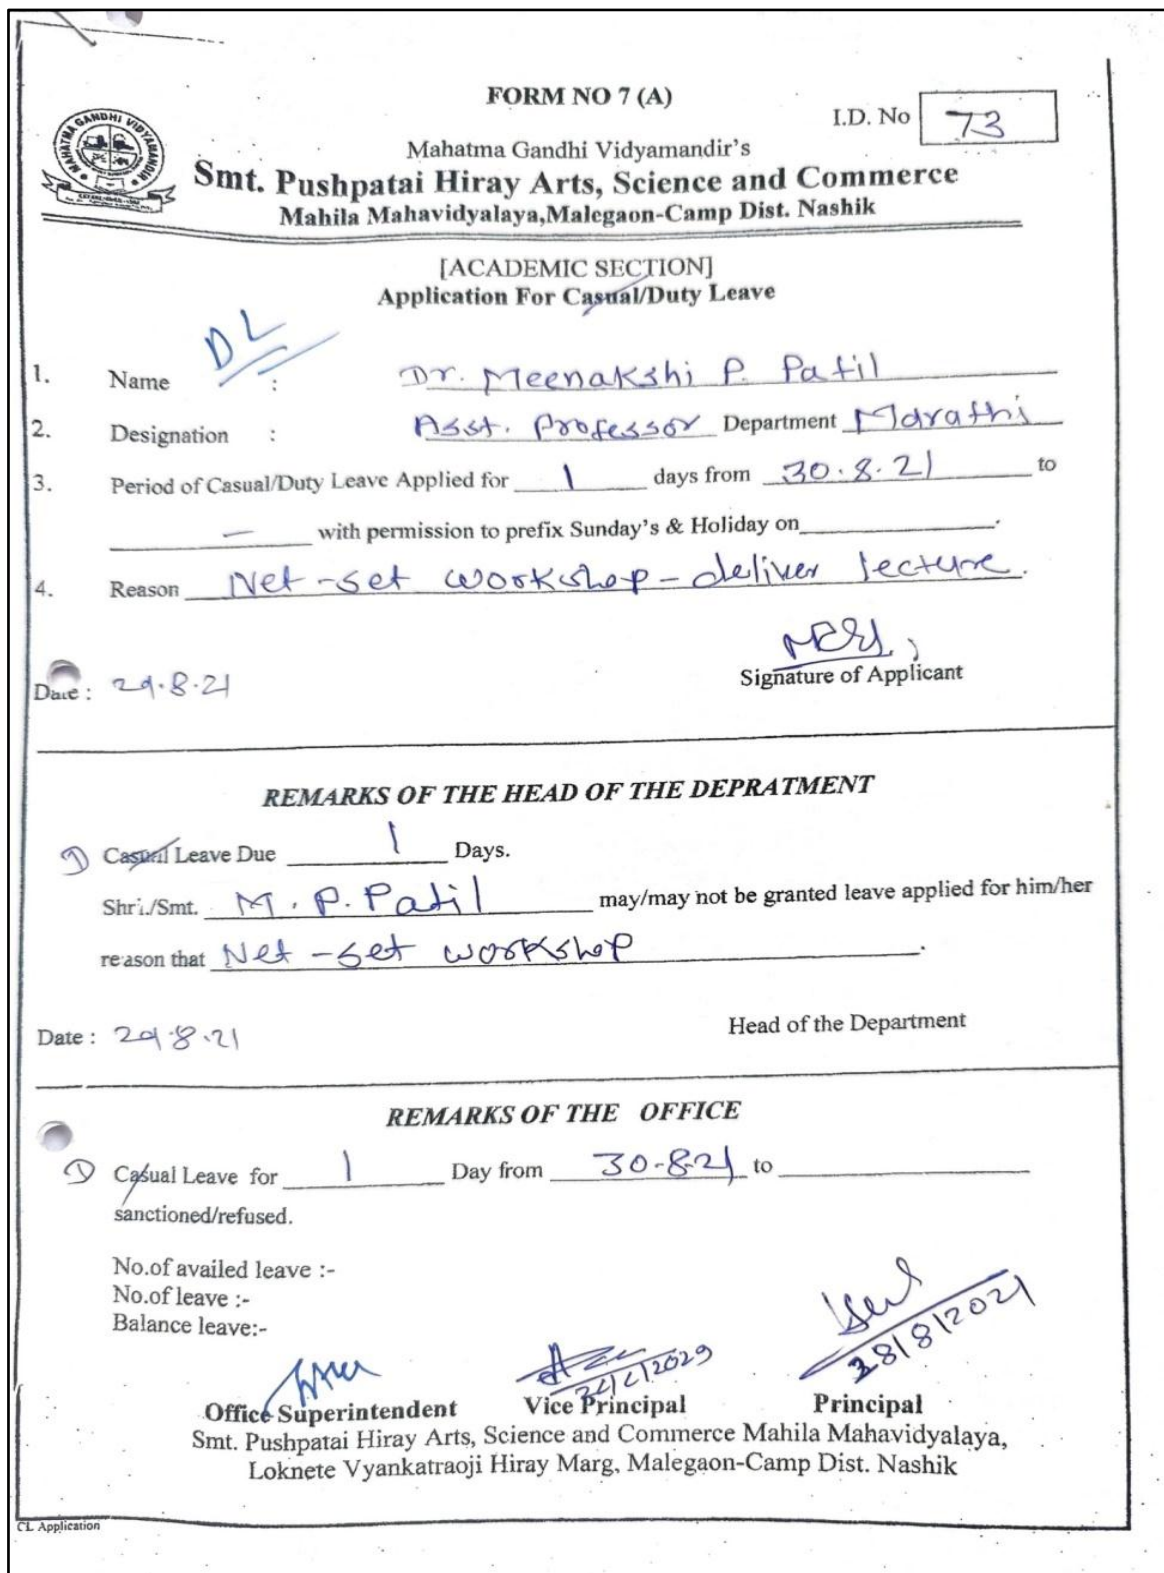 FORM NO 7 (A)
I.D. No 73
MAHATMA GANDHI VIDYAMANDIR
Mahatma Gandhi Vidyamandir's
Smt. Pushpatai Hiray Arts, Science and Commerce
Mahila Mahavidyalaya,Malegaon-Camp Dist. Nashik
[ACADEMIC SECTION]
Application For Casual/Duty Leave
DL
1. Name : Dr. Meenakshi P. Patil
2. Designation : Asst. Professor Department Marathi
3. Period of Casual/Duty Leave Applied for 1 days from 30.8.21 to
— with permission to prefix Sunday's & Holiday on
4. Reason Net-set workshop - deliver lecture.
Signature of Applicant
Date : 29.8.21
REMARKS OF THE HEAD OF THE DEPRATMENT
Casual Leave Due 1 Days.
Shri./Smt. M. P. Patil may/may not be granted leave applied for him/her
reason that Net-set workshop.
Date : 29.8.21 Head of the Department
REMARKS OF THE OFFICE
Casual Leave for 1 Day from 30-8-21 to
sanctioned/refused.
No.of availed leave :-
No.of leave :-
Balance leave:-
28/8/2021
Office Superintendent Vice Principal Principal
Smt. Pushpatai Hiray Arts, Science and Commerce Mahila Mahavidyalaya,
Loknete Vyankatraoji Hiray Marg, Malegaon-Camp Dist. Nashik
CL Application